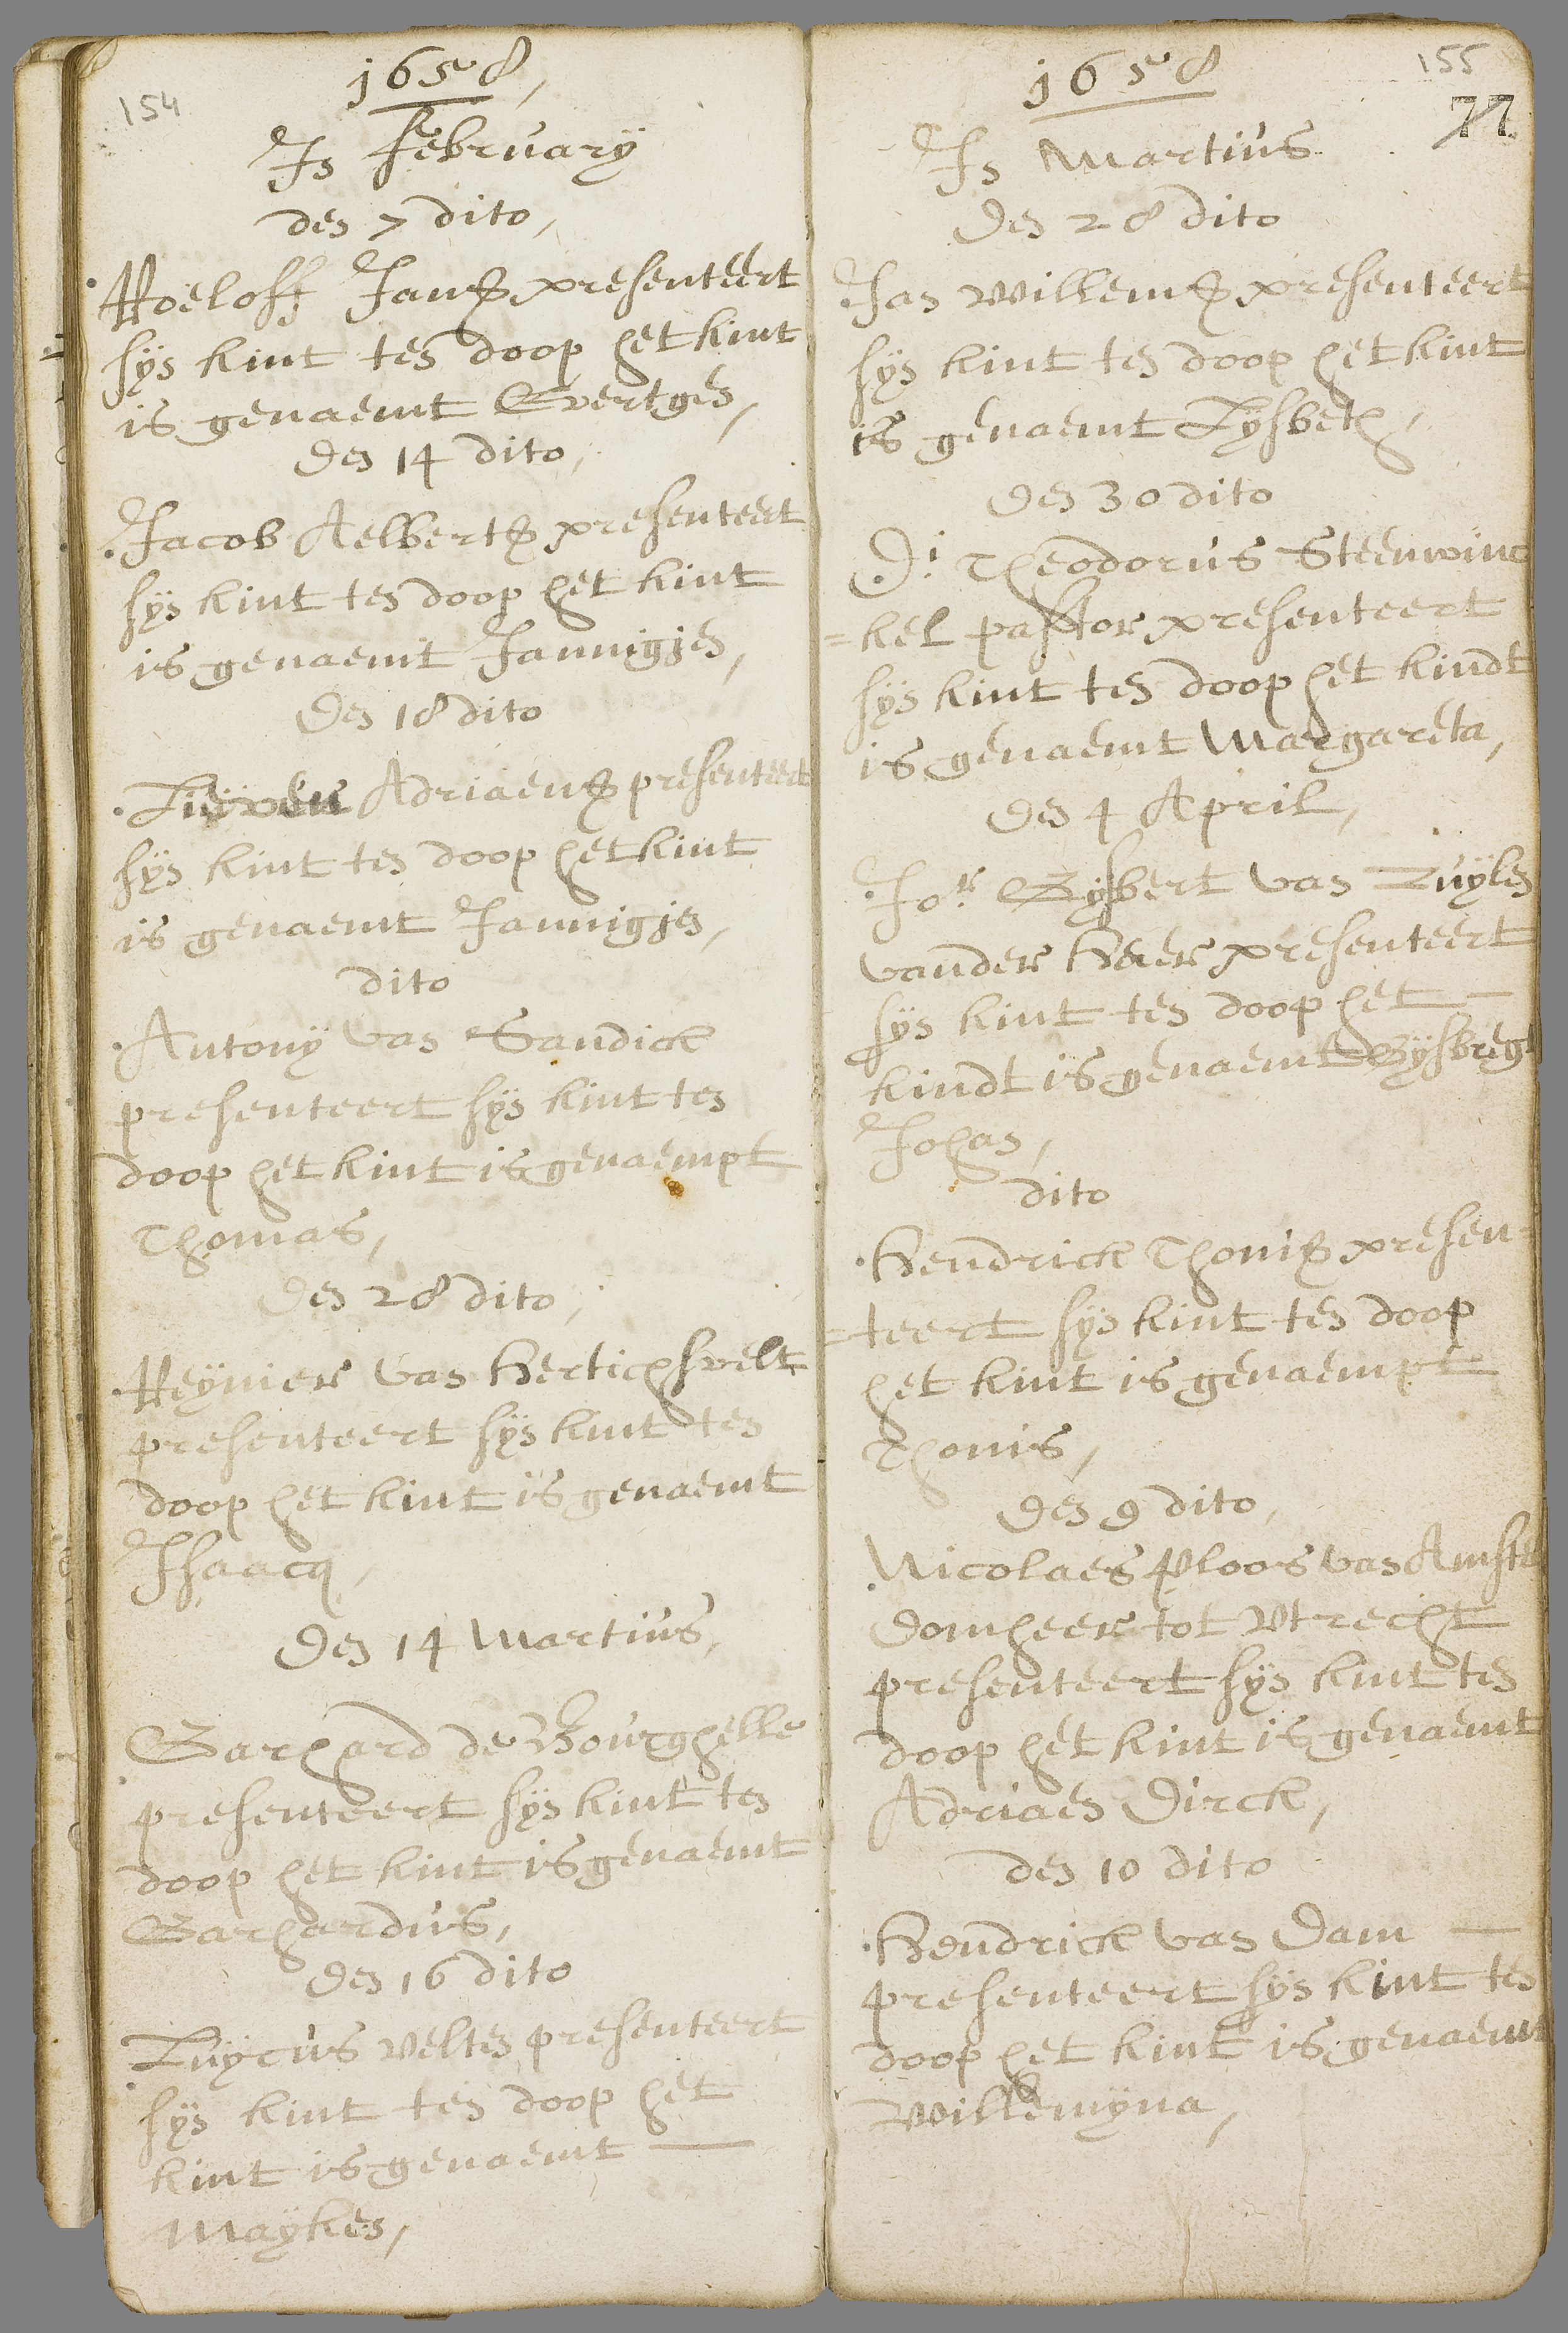 154
1658,
In February
den 7 dito,
Roeloff Jansz presenteert
sijn kint ten doop het kint
is genaemt Evertgen,
den 14 dito,
Jacob Aelbertsz presenteert
sijn kint ten doop het kint
is genaemt Jannigjen,
den 18 dito
Lieven Adriaensz presenteert
sijn kint ten doop het kint
is genaemt Jannigjen,
dito
Antonÿ van Sandick
presenteert sijn kint ten
doop het kint is genaempt
Thomas,
den 28 dito,
Reÿnier van Hertichsvelt
presenteert sijn kint ten
doop het kint is genaemt
Isaacq,
den 14 Martius,
Garhard de Bourghelle
presenteert sijn kint ten
doop het kint is genaemt
Garhardus,
den 16 dito
Luÿcus Velten presenteert
sijn kint ten doop het
kint is genaemt
Maÿken,
155
77
1658
In Martius
den 28 dito
Jan Willemsz presenteert
sijn kint ten doop het kint
is genaemt Lÿsbeth,
den 30 dito
D: Theodorus Steenwinc
=kel pastor presenteert
sijn kint ten doop het kindt
is genaemt Margareta,
den 4 April,
Jor. Gÿsbert van Zuÿlen
vander Haer presenteert
sijn kint ten doop het
kindt is genaemt Gÿsbregt
Johan,
dito
Hendrick Thonisz presen-
=teert sijn kint ten doop
het kint is genaempt
Thonis,
den 9 dito,
Nicolaes Ploos van Amstel
domheer tot Vtrecht
presenteert sijn kint ten
doop het kint is genaemt
Adriaen Dirck,
den 10 dito
Hendrick van Dam
presenteert sijn kint ten
doop het kint is genaemt
Willemÿna,